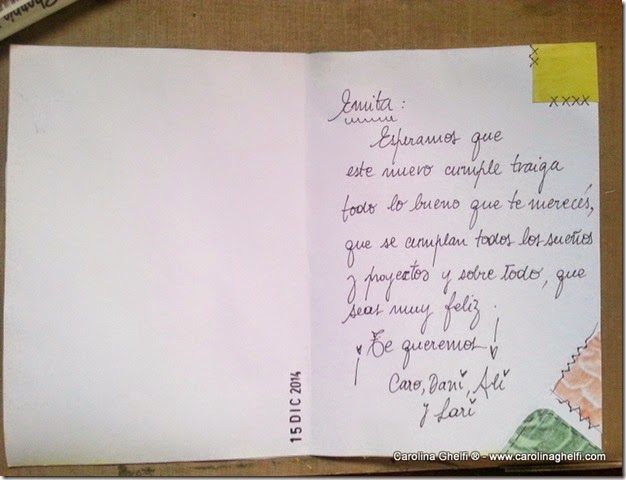 Emita:
Esperamos que
este nuevo cumple traiga
todo lo bueno que te merecés,
que se cumplan todos los sueños
y proyectos y sobre todo, que
seas muy feliz.
¡Te queremos!
Caro, Dani, Ali
y Lari
15 DIC 2014
Carolina Ghelfi ® - www.carolinaghelfi.com